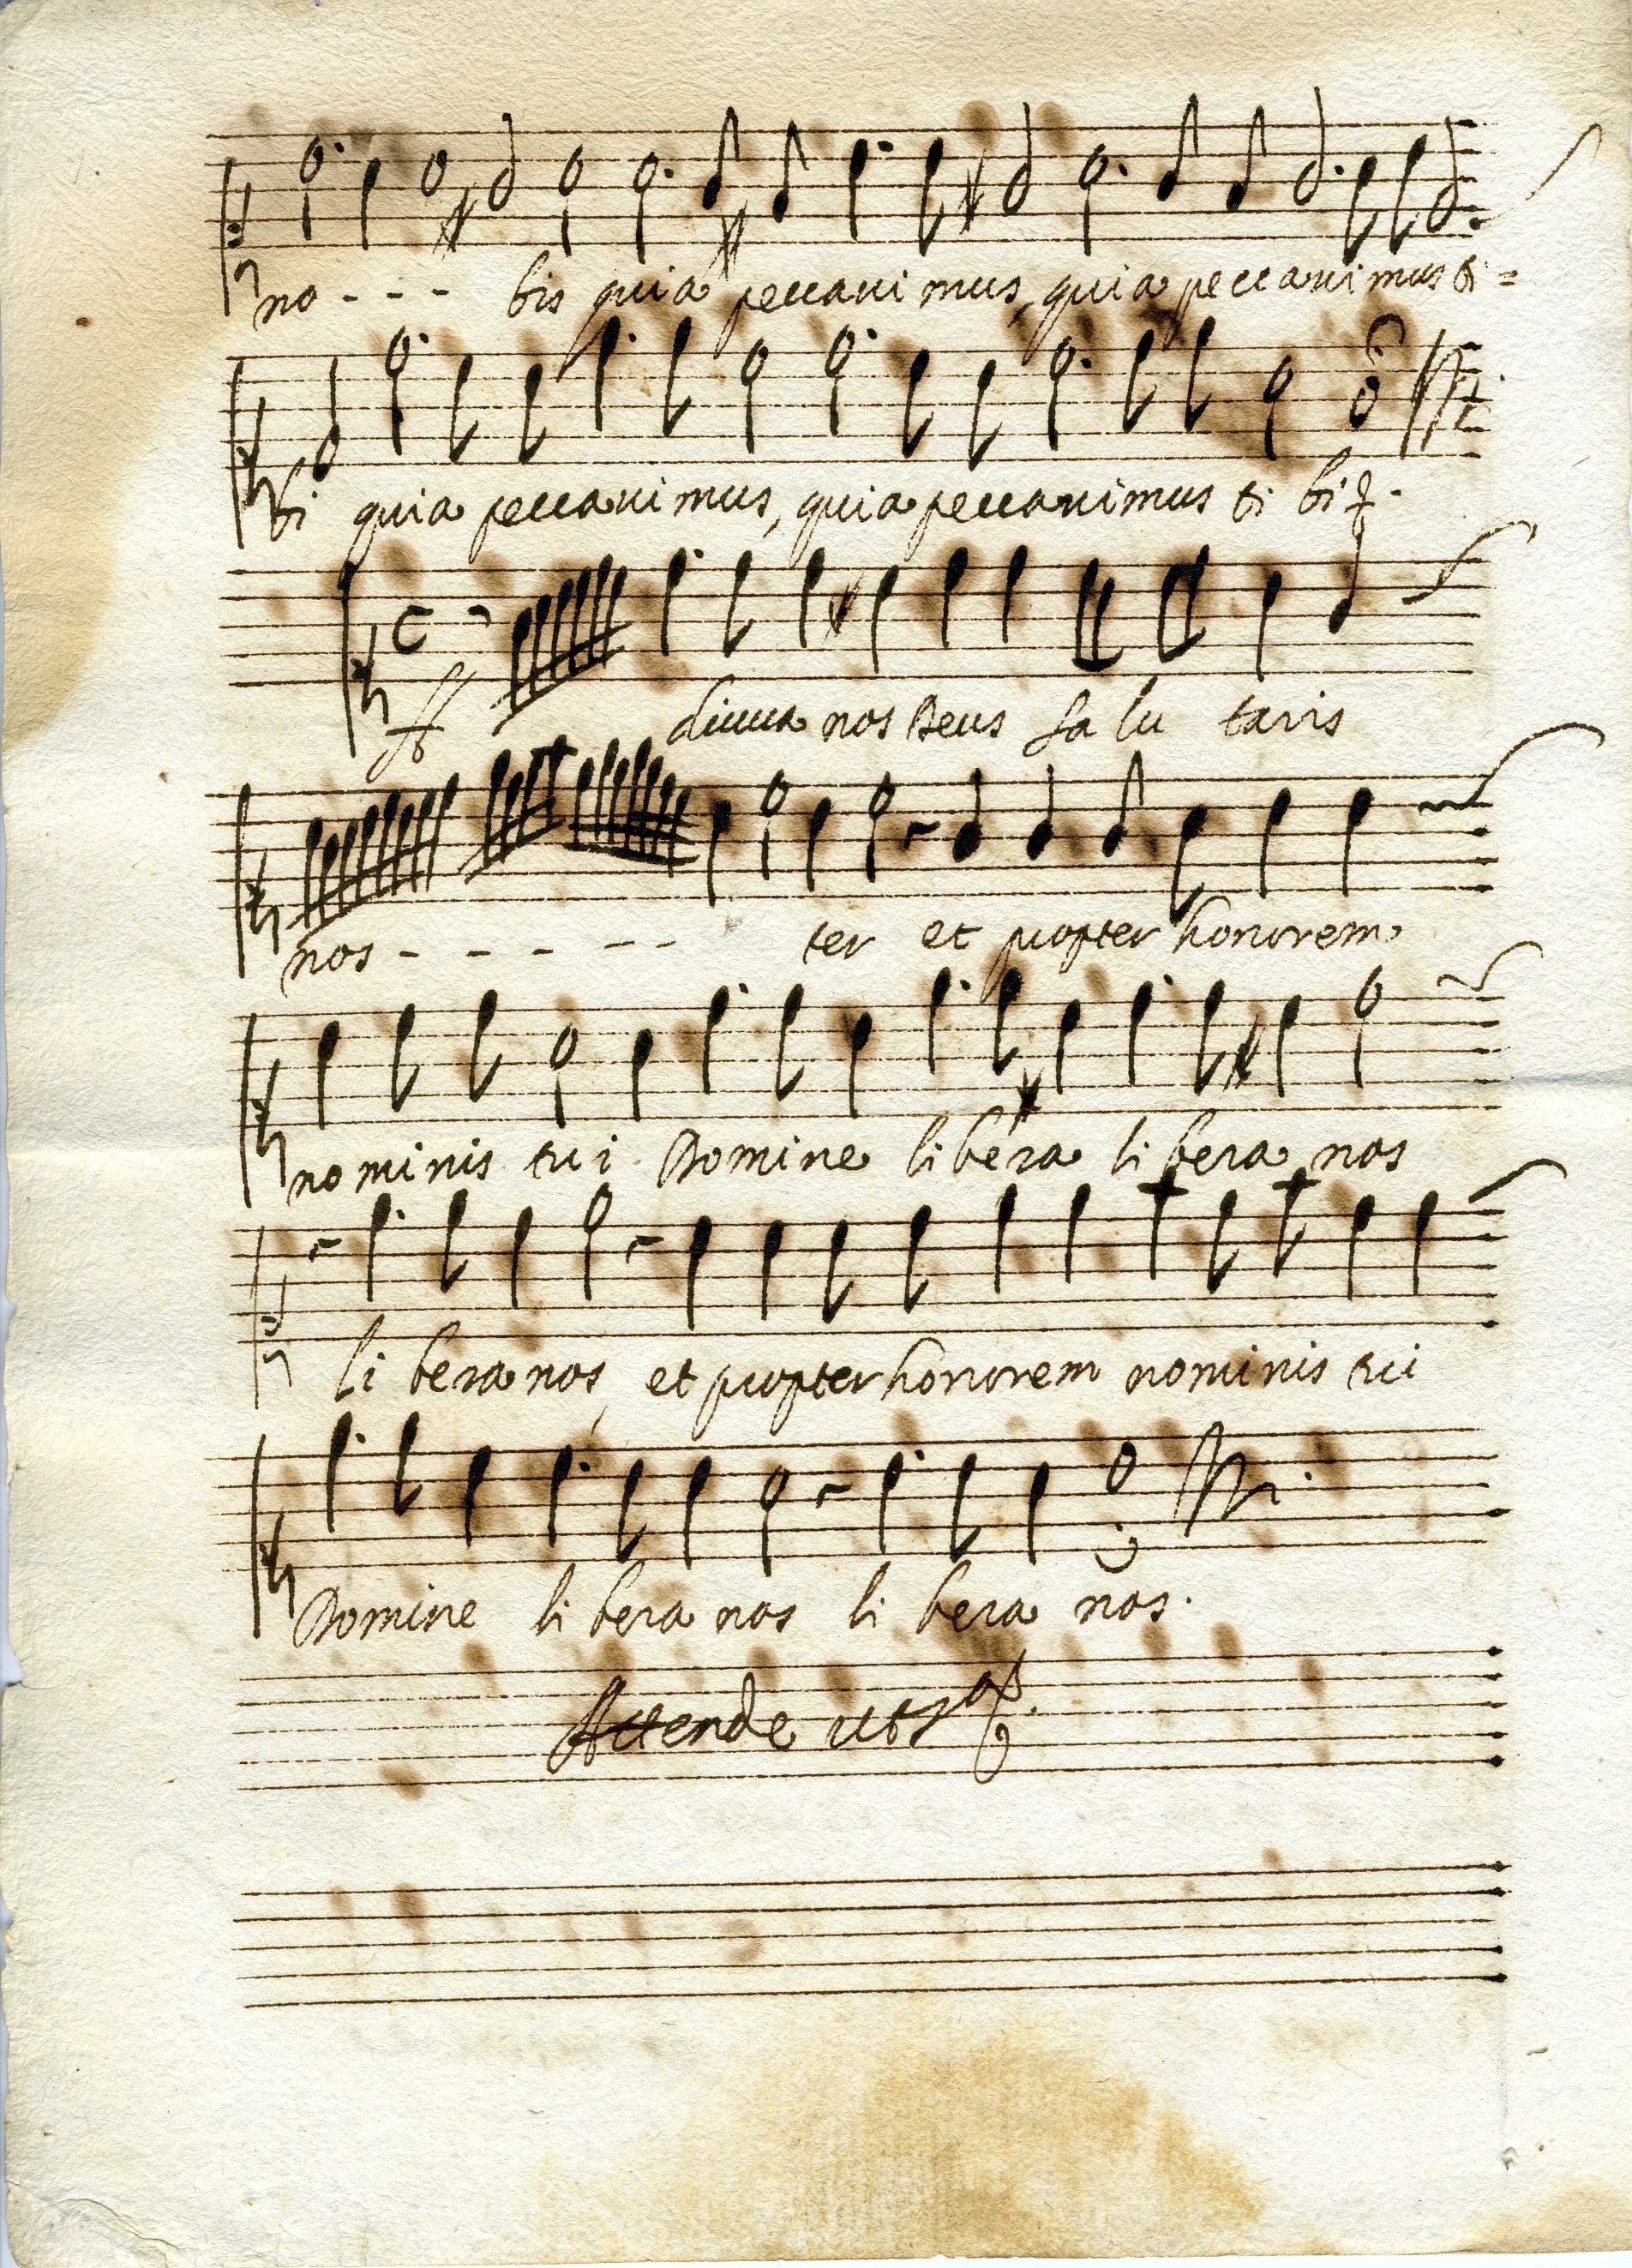 no - - - bis quia peccaui mus, quia peccauimus ti =
bi quia peccauimus, quia peccauimus ti bi
A diuua nos Deus sa lu taris
nos - - - - - - ter et propter honorem
no minis tui Domine libera libera nos
li bera nos, et propter honorem nominis tui
Domine li bera nos li bera nos.
Attende ut